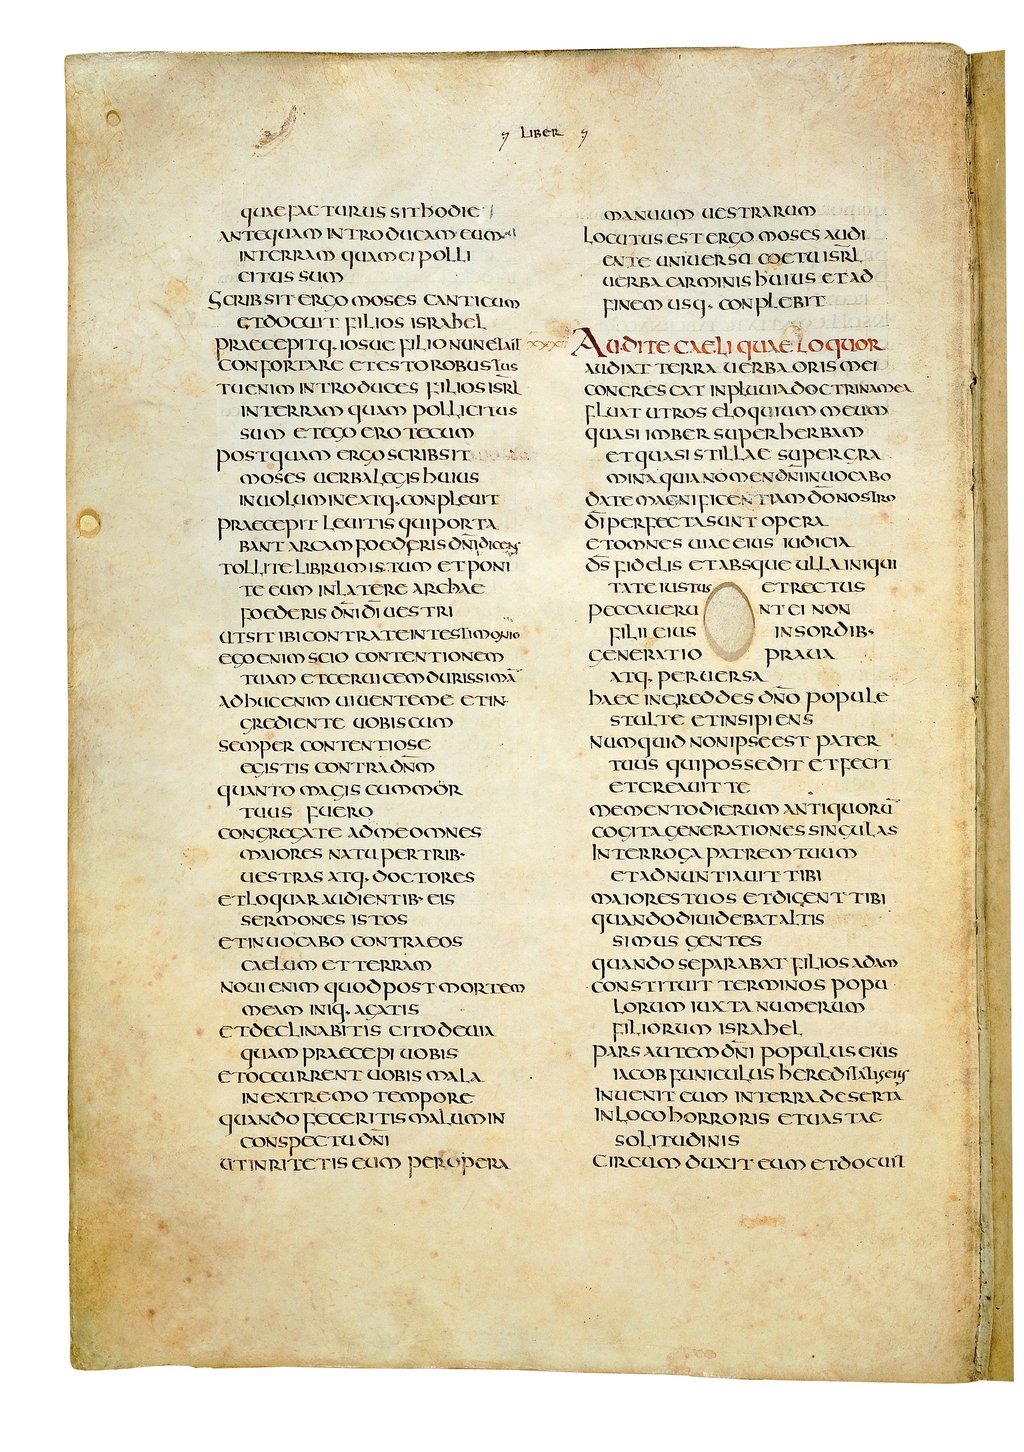 LIBER
quae facturus sit hodie
antequam introducam eum
in terram quam ei polli
citus sum
Scribsit ergo moses canticum
et docuit filios israhel
praecepitq. iosue filio nun et ait
confortare et esto robustus
tu enim introduces filios isrl
in terram quam pollicitus
sum et ego ero tecum
postquam ergo scribsit
moses uerba legis huius
in uolumine atq. conpleuit
praecepit leuitis qui porta
bant arcam foederis dni dicens
tollite librum istum et poni
te eum in latere archae
foederis dni di uestri
ut sit ibi contra te in testimonio
ego enim scio contentionem
tuam et ceruicem durissimā
adhuc enim uiuente me et in
grediente uobiscum
semper contentiose
egistis contra dnm
quanto magis cum mor
tuus fuero
congregate ad me omnes
maiores natu per trib·
uestras atq. doctores
et loquar audientib· eis
sermones istos
et inuocabo contra eos
caelum et terram
noui enim quod post mortem
meam iniq. agatis
et declinabitis cito de uia
quam praecepi uobis
et occurrent uobis mala
in extremo tempore
quando feceritis malum in
conspectu dni
ut inritetis eum per opera
manuum uestrarum
locutus est ergo moses audi
ente uniuerso coetu isrl
uerba carminis huius et ad
finem usq. conplebit
XXXII Audite caeli quae loquor
audiat terra uerba oris mei
concrescat in pluuia doctrina mea
fluat ut ros eloquium meum
quasi imber super herbam
et quasi stillae super gra
mina quia nomen dni inuocabo
date magnificentiam do nostro
di perfecta sunt opera
et omnes uiae eius iudicia
ds fidelis et absque ulla iniqui
tate iustus et rectus
peccaueru nt ei non
filii eius in sordib·
generatio praua
atq. peruersa
haec ingreddes dno popule
stulte et insipiens
numquid non ipse est pater
tuus qui possedit et fecit
et creauit te
memento dierum antiquorū
cogita generationes singulas
interroga patrem tuum
et adnuntiauit tibi
maiores tuos et dicent tibi
quando diuidebat altis
simus gentes
quando separabat filios adam
constituit terminos popu
lorum iuxta numerum
filiorum israhel
pars autem dni populus eius
iacob funiculus hereditatis eius
inuenit eum in terra deserta
in loco horroris et uastae
solitudinis
circumduxit eum et docuit